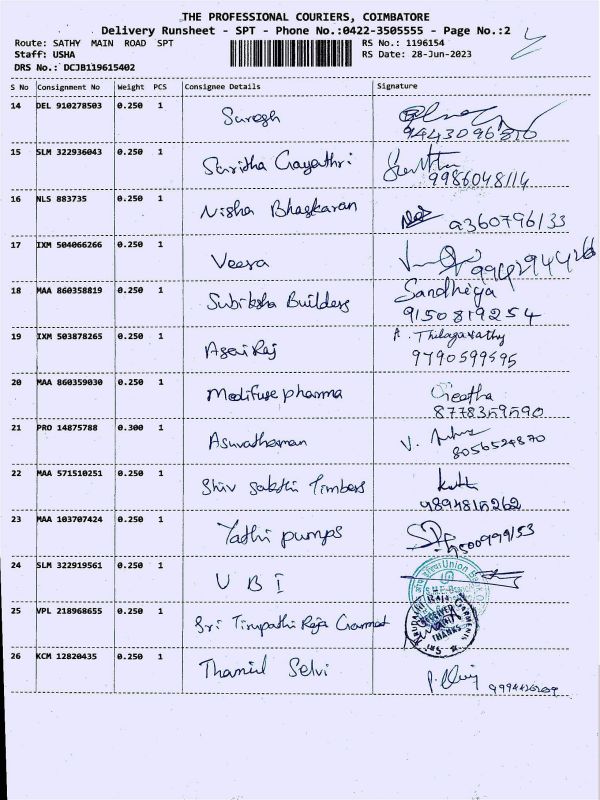 THE PROFESSIONAL COURIERS, COIMBATORE
Delivery Runsheet - SPT - Phone No.:0422-3505555 - Page No.:2
Route: SATHY MAIN ROAD SPT RS No.: 1196154
Staff: USHA RS Date: 28-Jun-2023
DRS No.: DCJB119615402
S No Consignment No Weight PCS Consignee Details Signature
14 DEL 910278503 0.250 1 Suresh
9443096810
15 SLM 322936043 0.250 1 Saritha Gayathri
9986048114
16 NLS 883735 0.250 1 Nisha Bhaskaran
9360796133
17 IXM 504066266 0.250 1 Veera
18 MAA 860358819 0.250 1 Subiksha Builders Sandhiya
9150819254
19 IXM 503878265 0.250 1 A. Thilagavathy
9790599595
20 MAA 860359030 0.250 1 Medifuse pharma Geetha
8778359590
21 PRO 14875788 0.300 1 Asuvathaman
8056524870
22 MAA 571510251 0.250 1 Shiv Sakthi Timbers
9894815262
23 MAA 103707424 0.250 1 Yathi pumps
24 SLM 322919561 0.250 1 U B I
Union Bank
25 VPL 218968655 0.250 1 Sri Tirupathi Raja Garmet
RECEIVED
WITH
THANKS
26 KCM 12820435 0.250 1 Thamil Selvi
9994426209